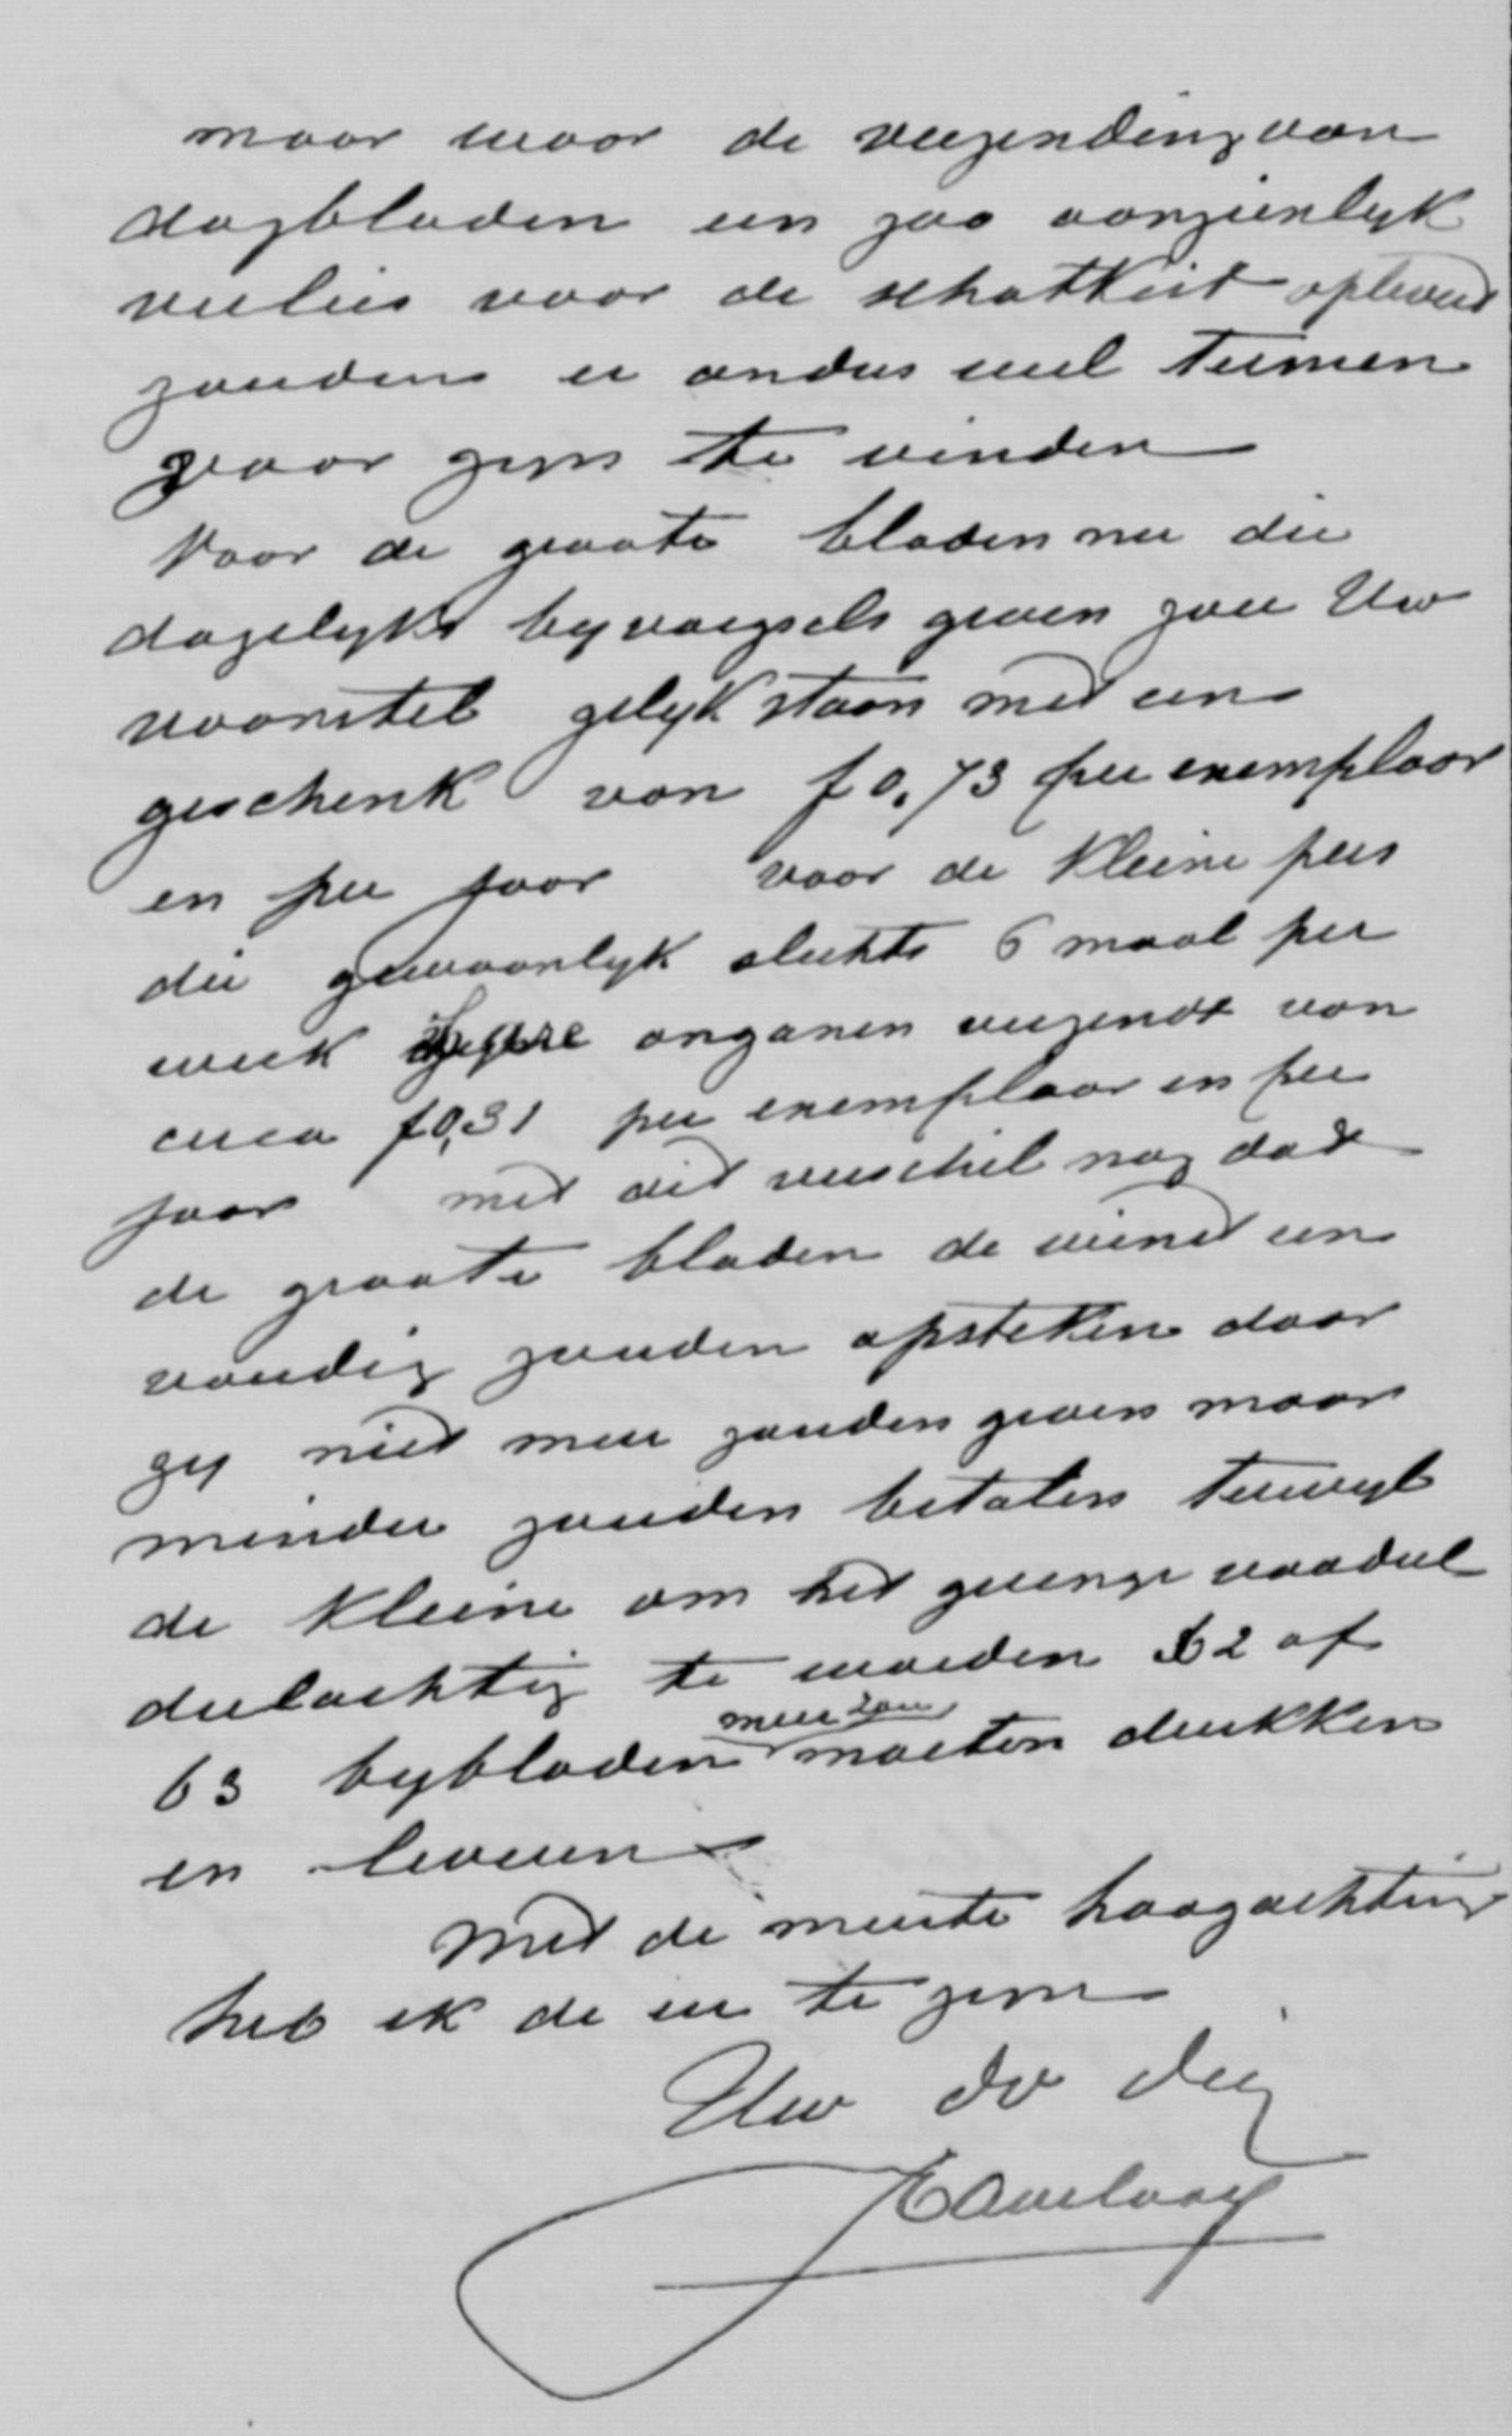 maar waar de verzending van
dagbladen een zoo aanzienlyk
verlies voor de schatkist oplevert
zouden er anders wel termen
voor zyn te vinden
Voor de groote bladen nu die
dagelyks byvoegsels geven zou Uw
voorstel gelyk staan met een
geschenk van f 0,73 per exemplaar
en per jaar voor de kleine pers
die gewoonlyk slechts 6 maal per
week organen verzendt van
circa f0,31 per exemplaar en per
jaar met dit verschil nog dat
de groote bladen de winst een
voudig zouden opsteken daar
zy niet meer zouden geven maar
minder zouden betalen terwyl
de kleine om het geringe voordeel
deelachtig te worden 52 of
63 bybladen meer zou moeten drukken
en leveren
Met de meeste hoogachting
heb ik de eer te zyn
Uw dv dr